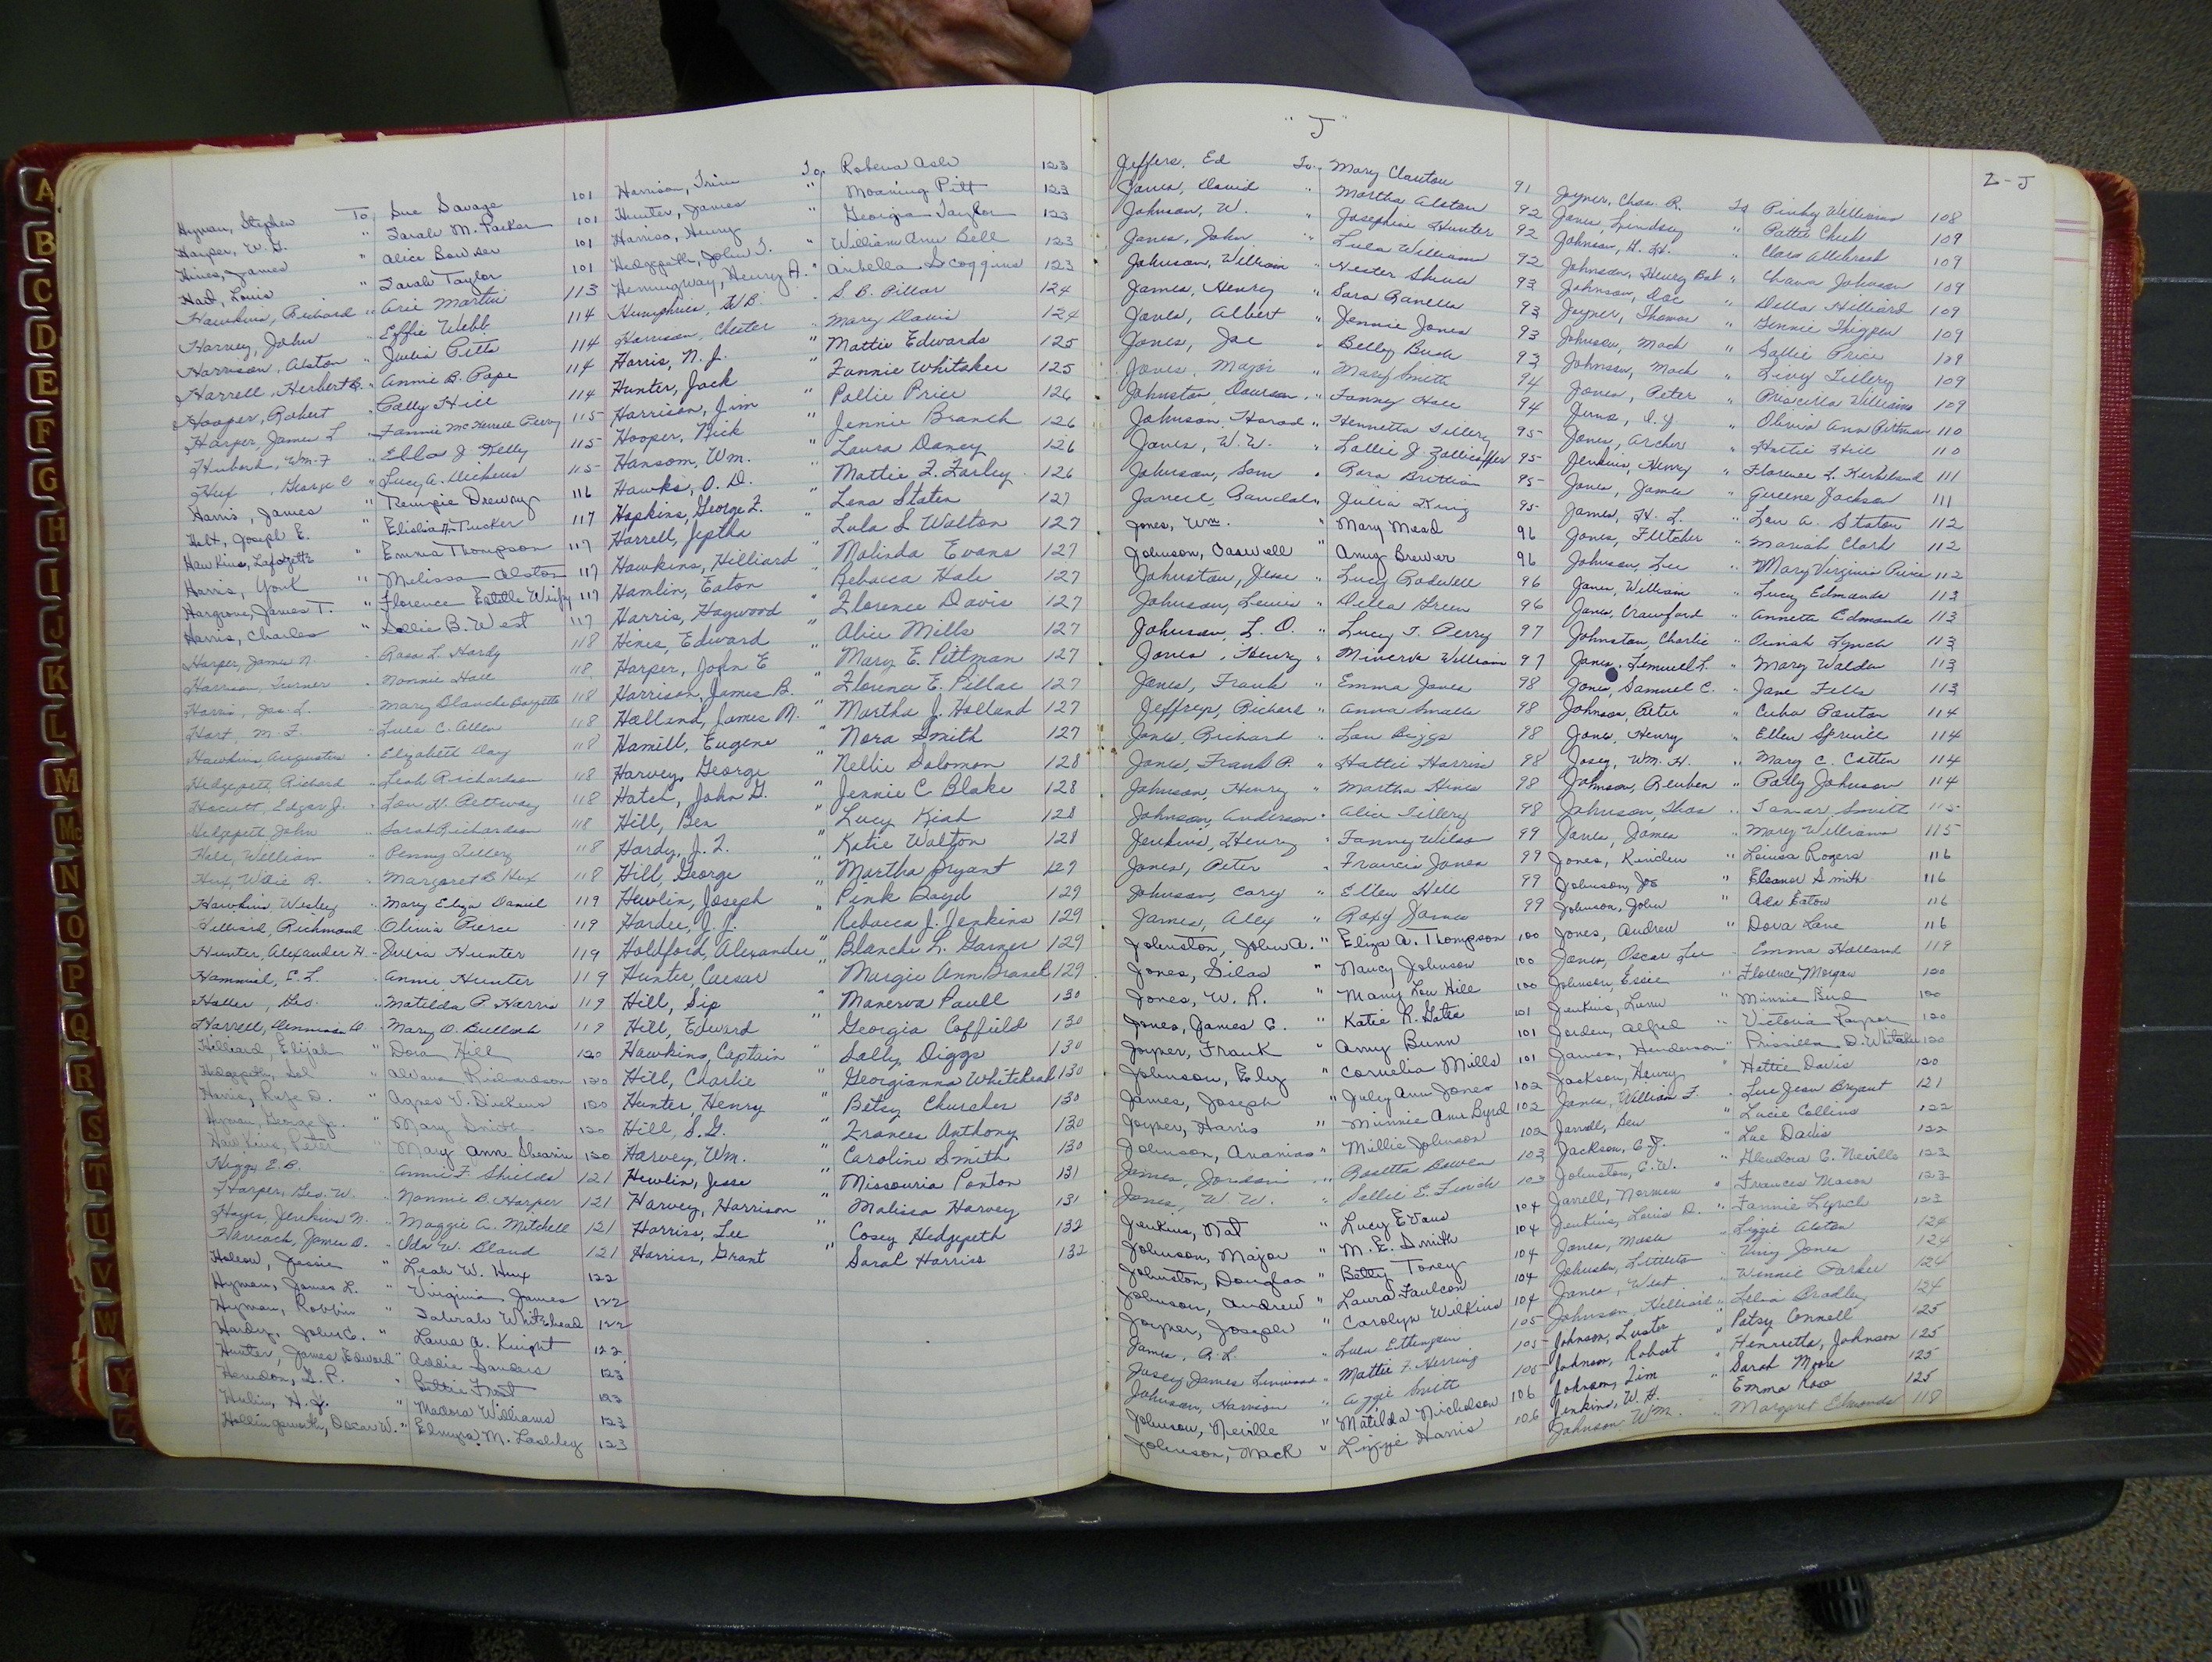 A
B
C
D
E
F
G
H
I
J
K
L
M
Mc
N
O
P
Q
R
S
T
U
V
W
Y
Z
Hyman, Stephen To Sue Savage 101
Harper, W. T. " Sarah M. Parker 101
Hines, James " Alice Bowser 101
Hart, Louis " Sarah Taylor 101
Hawkins, Richard " Arie Martin 113
Harvey, John " Effie Webb 114
Harrison, Alston " Julia Pitts 114
Harrell, Herbert B. " Annie B. Pope 114
Hooper, Robert " Cally Hill 114
Harper, James L " Fannie McNerrell Perry 115
Hubard, Wm. F " Ella J Kelly 115
Hux, George C " Lucy A. Dickens 115
Harris, James " Tempie Drewry 116
Holt, Joseph E. " Elisha H. Tucker 117
Hawkins, Lafayette " Emma Thompson 117
Harris, York " Melissa Alston 117
Hargrove, James T. " Florence Estelle 117
Harris, Charles " Sallie B. West 117
Harper, James N. " Rosa L. Hardy 118
Harrison, Turner " Nannie Hall 118
Harris, Jas. L. " Mary Blanche 118
Hart, M. F. " Lula C. Allen 118
Hawkins, Augustus " Elizabeth Day 118
Hedgepeth, Richard " Leah Richardson 118
Hocutt, Edgar J. " Lou H. Pettway 118
Hedgepeth, John " Sarah Richardson 118
Hill, William " Penny Tillery 118
Hux, Willie R. " Margaret B. Hux 118
Hawkins, Wesley " Mary Eliza Daniel 119
Hilliard, Richmond " Olivia Pierce 119
Hunter, Alexander H. " Julia Hunter 119
Hammill, E. L. " Annie Hunter 119
Haller, Geo. " Matilda P. Harris 119
Harrell, Dennison D. " Mary O. Bullock 119
Hilliard, Elijah " Dora Hill 120
Hedgepeth, Sol " Alvana Richardson 120
Harris, Rufe D. " Agnes V. Dickens 120
Hyman, George Jr. " Mary Smith 120
Hawkins, Peter " Mary Anne Shearin 120
Higgs, E. B. " Annie F. Shields 121
Harper, Geo. W. " Nannie B. Harper 121
Hayes, Jenkins N. " Maggie A. Mitchell 121
Hancock, James D. " Ida W. Bland 121
Holsow, Jessie " Leah W. Hux 122
Hyman, James L. " Virginia James 122
Hyman, Robbin " Tabirah Whitehead 122
Hardy, John C. " Laura A. Knight 122
Hunter, James Edward " Addie Sanders 123
Herndon, S. P. " Bettie Frost 123
Hulin, H. Y. " Madora Williams 123
Hollingsworth, Oscar W. " Elmyra M. Lashley 123
Harrison, Trim To Robena Ash 123
Hunter, James " Moaning Pitt 123
Harriss, Henry " Georgia Taylor 123
Hedgepeth, John T. " William Ann Bell 123
Hemingway, Henry A. " Arbella Scoggins 123
Humphries, W B. " S. B. Pillar 124
Harrison, Chester " Mary Davis 124
Harris, N. J. " Mattie Edwards 125
Hunter, Jack " Fannie Whitaker 125
Harrison, Jim " Pollie Price 126
Hooper, Nick " Jennie Branch 126
Hansom, Wm. " Laura Daney 126
Hawks, O. D. " Mattie F. Farley 126
Hopkins, George F. " Lena Staten 127
Harrell, Jeptha " Lula S Walton 127
Hawkins, Hilliard " Malinda Evans 127
Hamlin, Eaton " Rebecca Hale 127
Harris, Haywood " Florence Davis 127
Hines, Edward " Alice Mills 127
Harper, John E " Mary E. Pittman 127
Harrison, James B. " Florence E. Pillar 127
Holland, James M. " Martha J. Holland 127
Hamill, Eugene " Nora Smith 127
Harvey, George " Nellie Solomon 128
Hatch, John G. " Jennie C Blake 128
Hill, Ben " Lucy Kiah 128
Hardy, J. F. " Katie Walton 128
Hill, George " Martha Bryant 129
Hewlin, Joseph " Pink Boyd 129
Hardee, J. J. " Rebecca J. Jenkins 129
Holdford, Alexander " Blanche L. Garner 129
Hunter, Caesar " Margie Ann Branch 129
Hill, Sip " Manerva Paull 130
Hill, Edward " Georgia Coffield 130
Hawkins, Captain " Sally Diggs 130
Hill, Charlie " Georgianna Whitehead 130
Hunter, Henry " Betsy Churcher 130
Hill, S. G. " Frances Anthony 130
Harvey, Wm. " Caroline Smith 130
Hewlin, Jesse " Missouria Ponton 131
Harvey, Harrison " Malissa Harvey 131
Harriss, Lee " Cosey Hedgepeth 132
Harriss, Grant " Sarah Harriss 132
" J "
Jeffers, Ed To Mary Clanton 91
James, David " Martha Alston 92
Johnson, W. " Josephine Hunter 92
Jones, John " Lula Williams 92
Johnson, William " Hester Shines 93
James, Henry " Sara Ranells 93
Jones, Albert " Jennie Jones 93
Jones, Joe " Bettsy Bush 93
Jones, Major " Mary Smith 94
Johnston, Dawson " Fanney Hall 94
Johnson, Harod " Henrietta Tillery 95
Jones, W. W. " Lallie J Zollicoffer 95
Johnson, Som " Rosa Brittian 95
Janell, Randal " Julia King 95
Jones, Wm. " Mary Mead 96
Johnson, Oaswell " Amy Brewer 96
Johnston, Jesse " Lucy Rodwell 96
Johnson, Lewis " Della Green 96
Johnson, L. O. " Lucy T. Perry 97
Jones, Henry " Minerva William 97
Jones, Frank " Emma Jones 98
Jeffreys, Richard " Anna Smalls 98
Jones, Richard " Lou Biggs 98
Jones, Frank P. " Hattie Harriss 98
Johnson, Henry " Martha Hines 98
Johnson, Anderson " Alice Tillery 98
Jenkins, Henry " Fanny Wilson 99
Jones, Peter " Francis Jones 99
Johnson, Cary " Ellen Hill 99
James, Alex " Roxy James 99
Johnston, John A. " Eliza A. Thompson 100
Jones, Silas " Nancy Johnson 100
Jones, W. R. " Mary Lou Hill 100
Jones, James C. " Katie R. Gates 101
Joyner, Frank " Amy Bunn 101
Johnson, Ely " Cornelia Mills 101
James, Joseph " July Ann Jones 102
Joyner, Harris " Minnie Ann Byrd 102
Johnson, Ananias " Millie Johnson 102
James, Jordan " Rosetta Bowen 103
Jones, W. W. " Sallie E. Finch 103
Jenkins, Nat " Lucy Evans 104
Johnson, Major " M. E. Smith 104
Johnston, Douglas " Betty Toney 104
Johnson, Andrew " Laura Faulcon 104
Joyner, Joseph " Carolyn Wilkins 104
James, R. L. " Lula 105
Josey, James Linwood " Mattie F. Herring 105
Johnson, Harrison " Aggie Smith 105
Johnson, Neville " Matilda Nicholson 106
Johnson, Mack " Lizzie Harris 106
2-J
Joyner, Chas. R. To Pinky Williams 108
Jones, Lindsey " Pattie Cheek 109
Johnson, H. H. " Clara Allsbrook 109
Johnson, Henry Bat " Chana Johnson 109
Johnson, Doc " Della Hilliard 109
Joyner, Thomas " Jennie Thigpen 109
Johnson, Mack " Sallie Price 109
Johnson, Mack " Livy Tillery 109
Jones, Peter " Priscilla Williams 109
" Olivia Ann Pittman 110
Jones, Archer " Hattie Hill 110
Jenkins, Henry " Florence L. Kirkland 111
Jones, James " Greene Jackson 111
James, H. L. " Lou A. Staton 112
Jones, Fletcher " Mariah Clark 112
Johnson, Lee " Mary Virginia 112
Jones, William " Lucy Edmonds 112
Jones, Crawford " Annette Edmonds 113
Johnston, Charlie " Lynch 113
Jones, Lemuel L. " Mary Walden 113
Jones, Samuel C. " Jane Fells 113
Johnson, Peter " Cuba Ponton 114
Jones, Henry " Ellen Spruill 114
Josey, Wm. H. " Mary C. Cotten 114
Johnson, Reuben " Patty Johnson 114
Johnson, Thos " Tamar Smith 115
Jones, James " Mary Williams 115
Jones, Kinchen " Louisa Rogers 116
Johnson, Joe " Eleanor Smith 116
Johnson, John " Ada Eaton 116
Jones, Andrew " Dora Lane 116
Jones, Oscar Lee " Emma Holland 119
Johnson, Essie " Florence Morgan 120
Jenkins, " Minnie 120
Jorden, Alfred " Victoria Raynor 120
James, Henderson " Prissilla D. Whitaker 120
Jackson, Henry " Hettie Davis 120
Jones, William F. " Lue Jean Bryant 121
Jarrell, Ben " Lucie Collins 122
Jackson, C. J. " Lue Davis 122
Johnston, C. W. " Glendora C. Neville 123
Jarrell, Norman " Frances Mason 123
Jenkins, Louis D. " Fannie Lynch 123
Jones, Mack " Lizzie Alston 124
Johnson, Littleton " Viny Jones 124
Jones, West " Winnie Parker 124
Johnson, Hilliard " Lelia Bradley 124
Johnson, Luster " Patsy Connell 125
Johnson, Robert " Henrietta Johnson 125
Johnson, Jim " Sarah Moore 125
Jenkins, W. H. Emma Ross 125
Johnson, Wm. " Margaret Edmonds 118